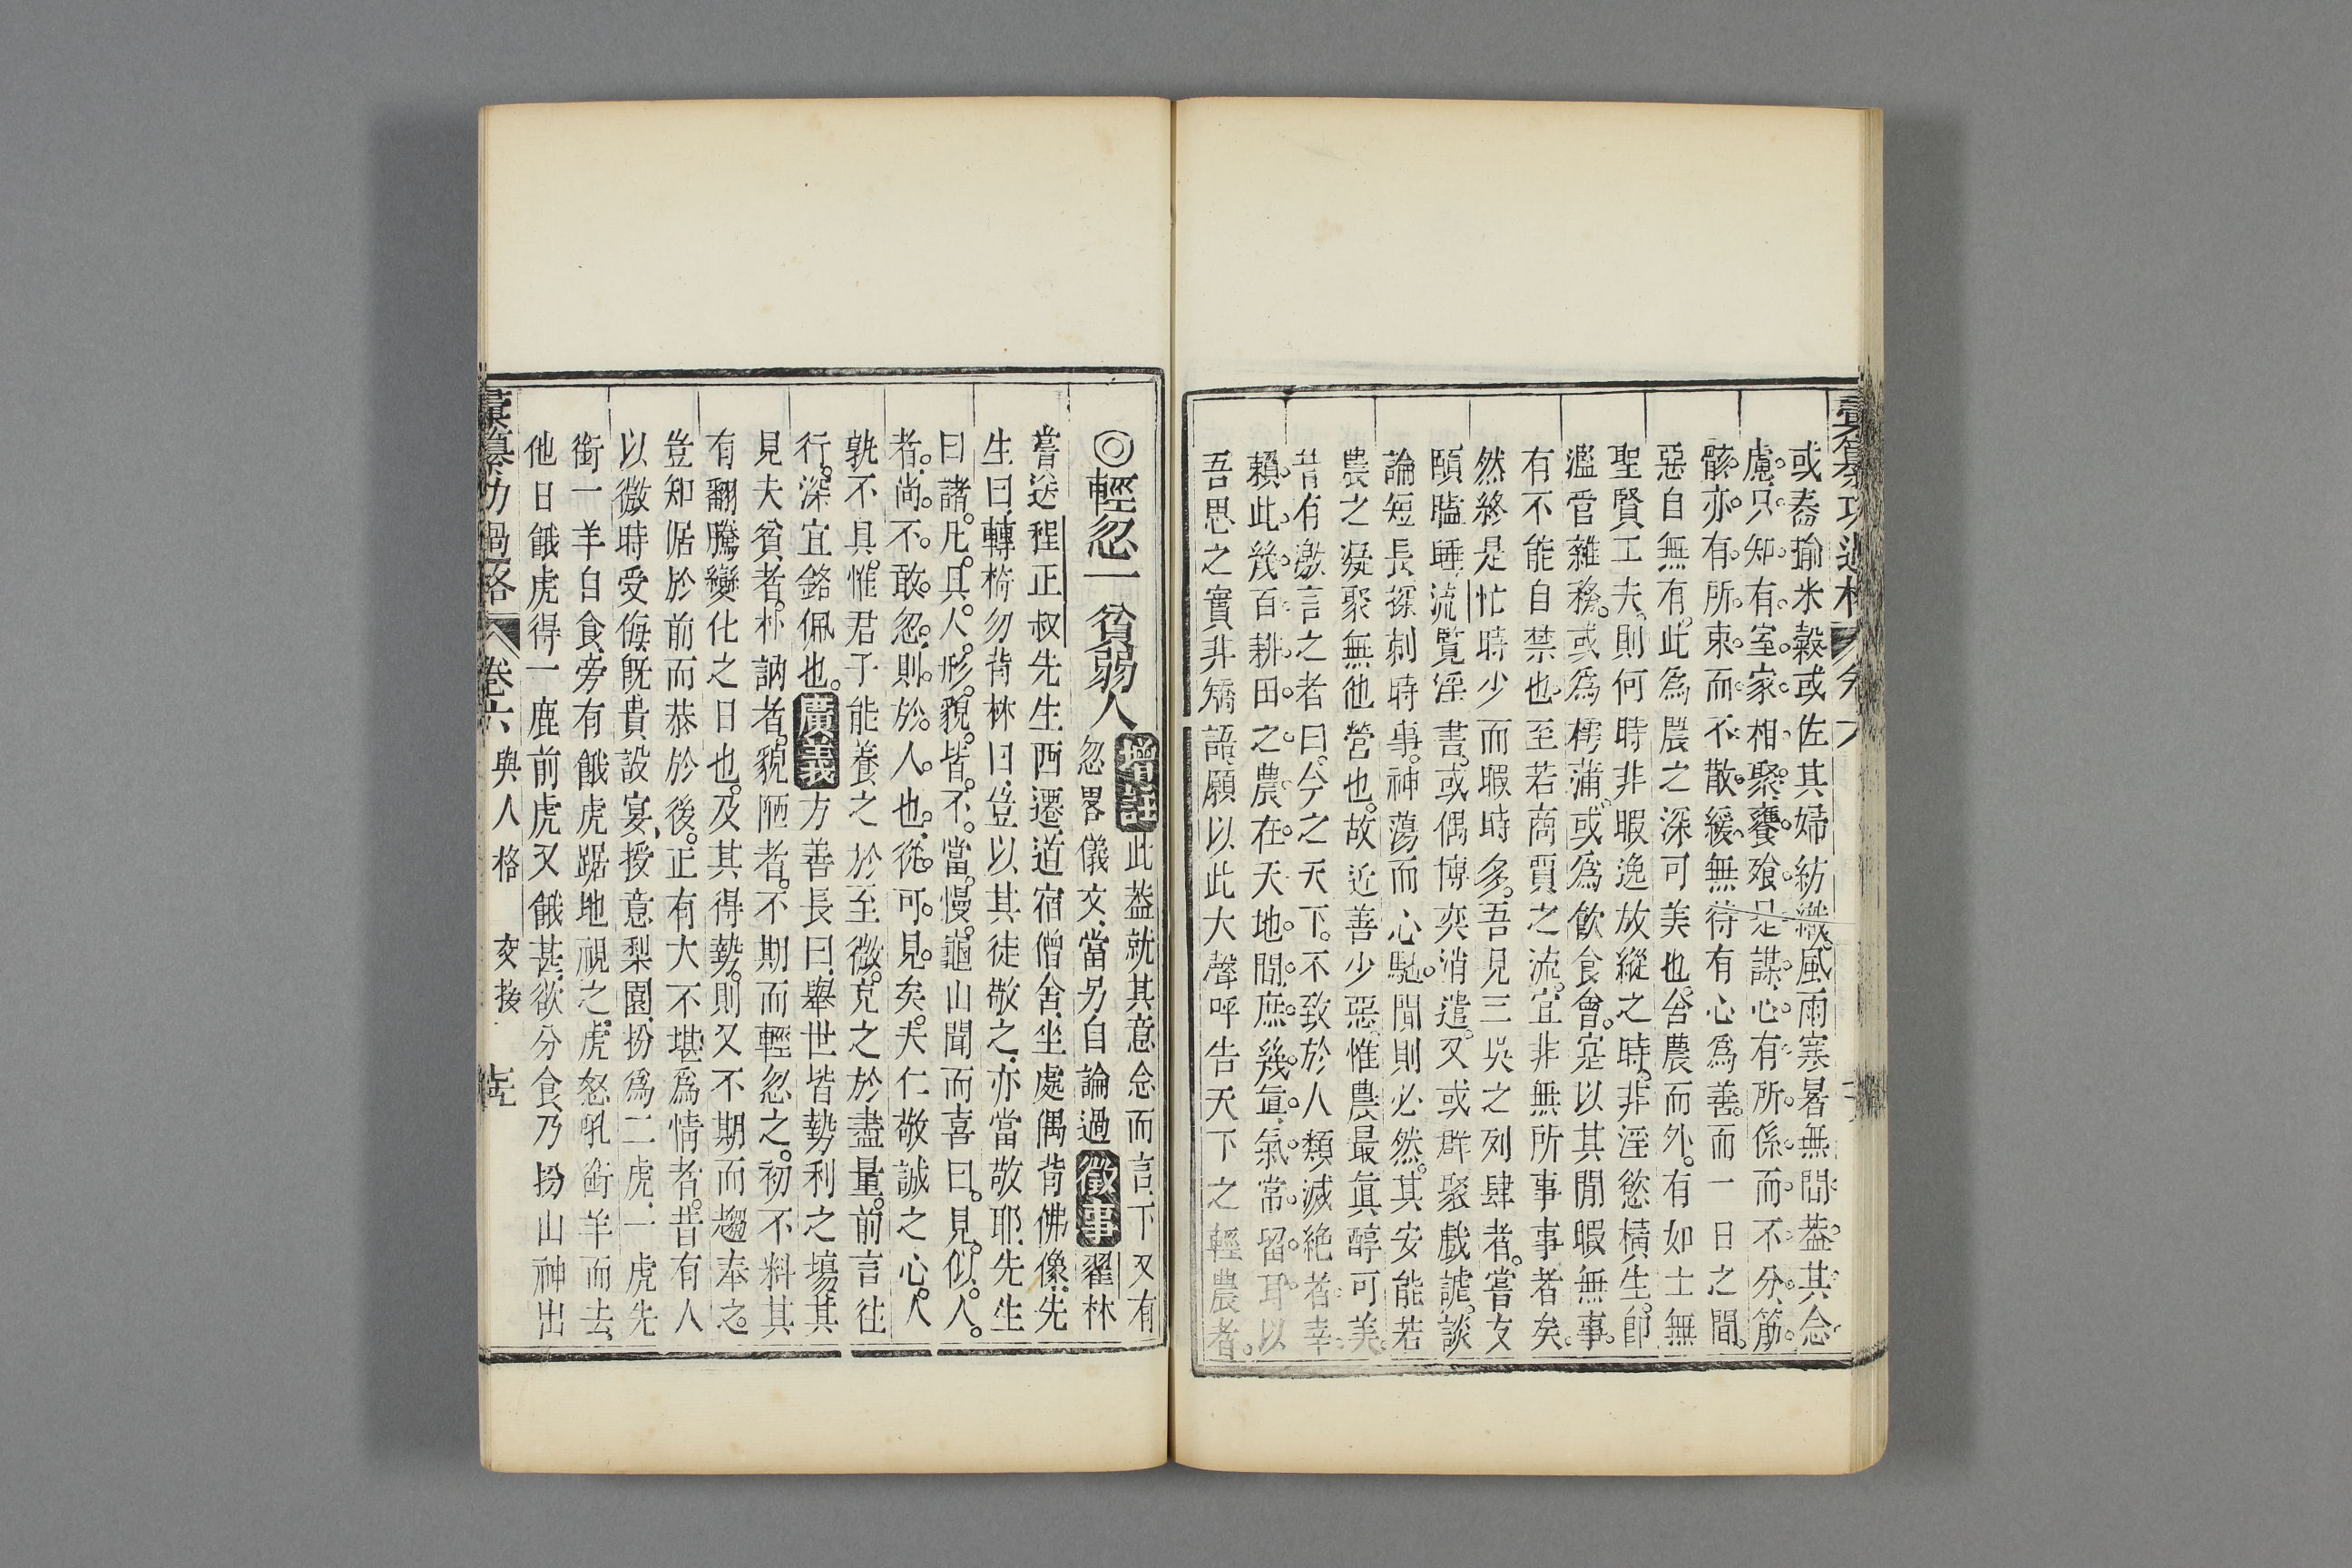 彙纂功過格 卷六
或舂揄米穀或佐其婦紡織風雨寒暑無間葢其念
慮只知有室家相聚饔飱是謀心有所係而不分筋
骸亦有所束而不散緩無待有心爲善而一日之間
惡自無有此爲農之深可美也啓農而外有如士無
聖賢工夫則何時非暇逸放縱之時非淫慾橫生卽
濫管雜務或爲樗蒲或爲飲食會寔以其閒暇無事
有不能自禁也至若商賈之流宜非無所事事者矣
然終是忙時少而暇時多吾見三吳之列肆者嘗友
頤瞌睡流覽淫書或偶博奕消遣又或群聚戲謔談
論短長探刺時事神蕩而心馳間則必然其安能若
農之凝聚無他營也故近善少惡惟農最眞醇可美
昔有激言之者曰今之天下不致於人類滅絶者幸
賴此幾百耕田之農在天地間庶幾眞氣常留耳以
吾思之實非矯語願以此大聲呼告天下之輕農者
◎輕忽一貧弱人 增註 此葢就其意念而言下又有
忽畧儀文當另自論過 徵事 翟林
嘗送程正叔先生西遷道宿僧舍坐處偶背佛像先
生曰轉椅勿背林曰豈以其徒敬之亦當敬耶先生
曰諸凡具人形貌皆不當慢龜山聞而喜曰見似人
者尚不敢忽則於人也從可見矣夫仁敬誠之心人
孰不具惟君子能養之於至微克之於盡量前言往
行深宜銘佩也 廣義 方善長曰舉世皆勢利之場其
見夫貧者朴訥者貌陋者不期而輕忽之初不料其
有翻騰變化之日也及其得勢則又不期而趨奉之
豈知倨於前而恭於後正有大不堪爲情者昔有人
以微時受侮旣貴設宴授意梨園扮爲二虎一虎先
銜一羊自食旁有餓虎踞地視之虎怒吼銜羊而去
他日餓虎得一鹿前虎又餓甚欲分食乃扮山神出
彙纂功過格 卷六 與人格 交接